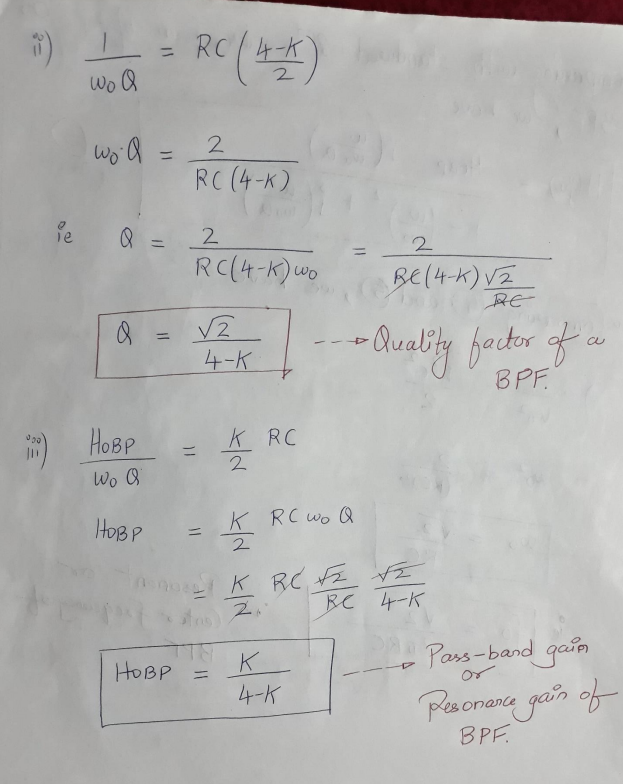 ii) 1/ω₀Q = RC(4-K/2)
ω₀·Q = 2/RC(4-K)
ie Q = 2/RC(4-K)ω₀ = 2/RC(4-K)√2/RC
Q = √2/4-K ---→ Quality factor of a
BPF.
iii) HOBP/ω₀Q = K/2 RC
HOBP = K/2 RC ω₀ Q
= K/2 RC √2/RC √2/4-K
HOBP = K/4-K ----→ Pass-band gain
or
Resonance gain of
BPF.